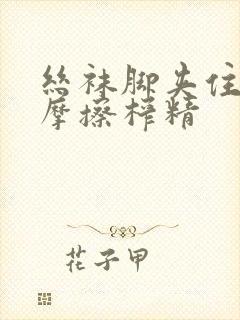 丝袜脚夹住
摩擦榨精
花子甲